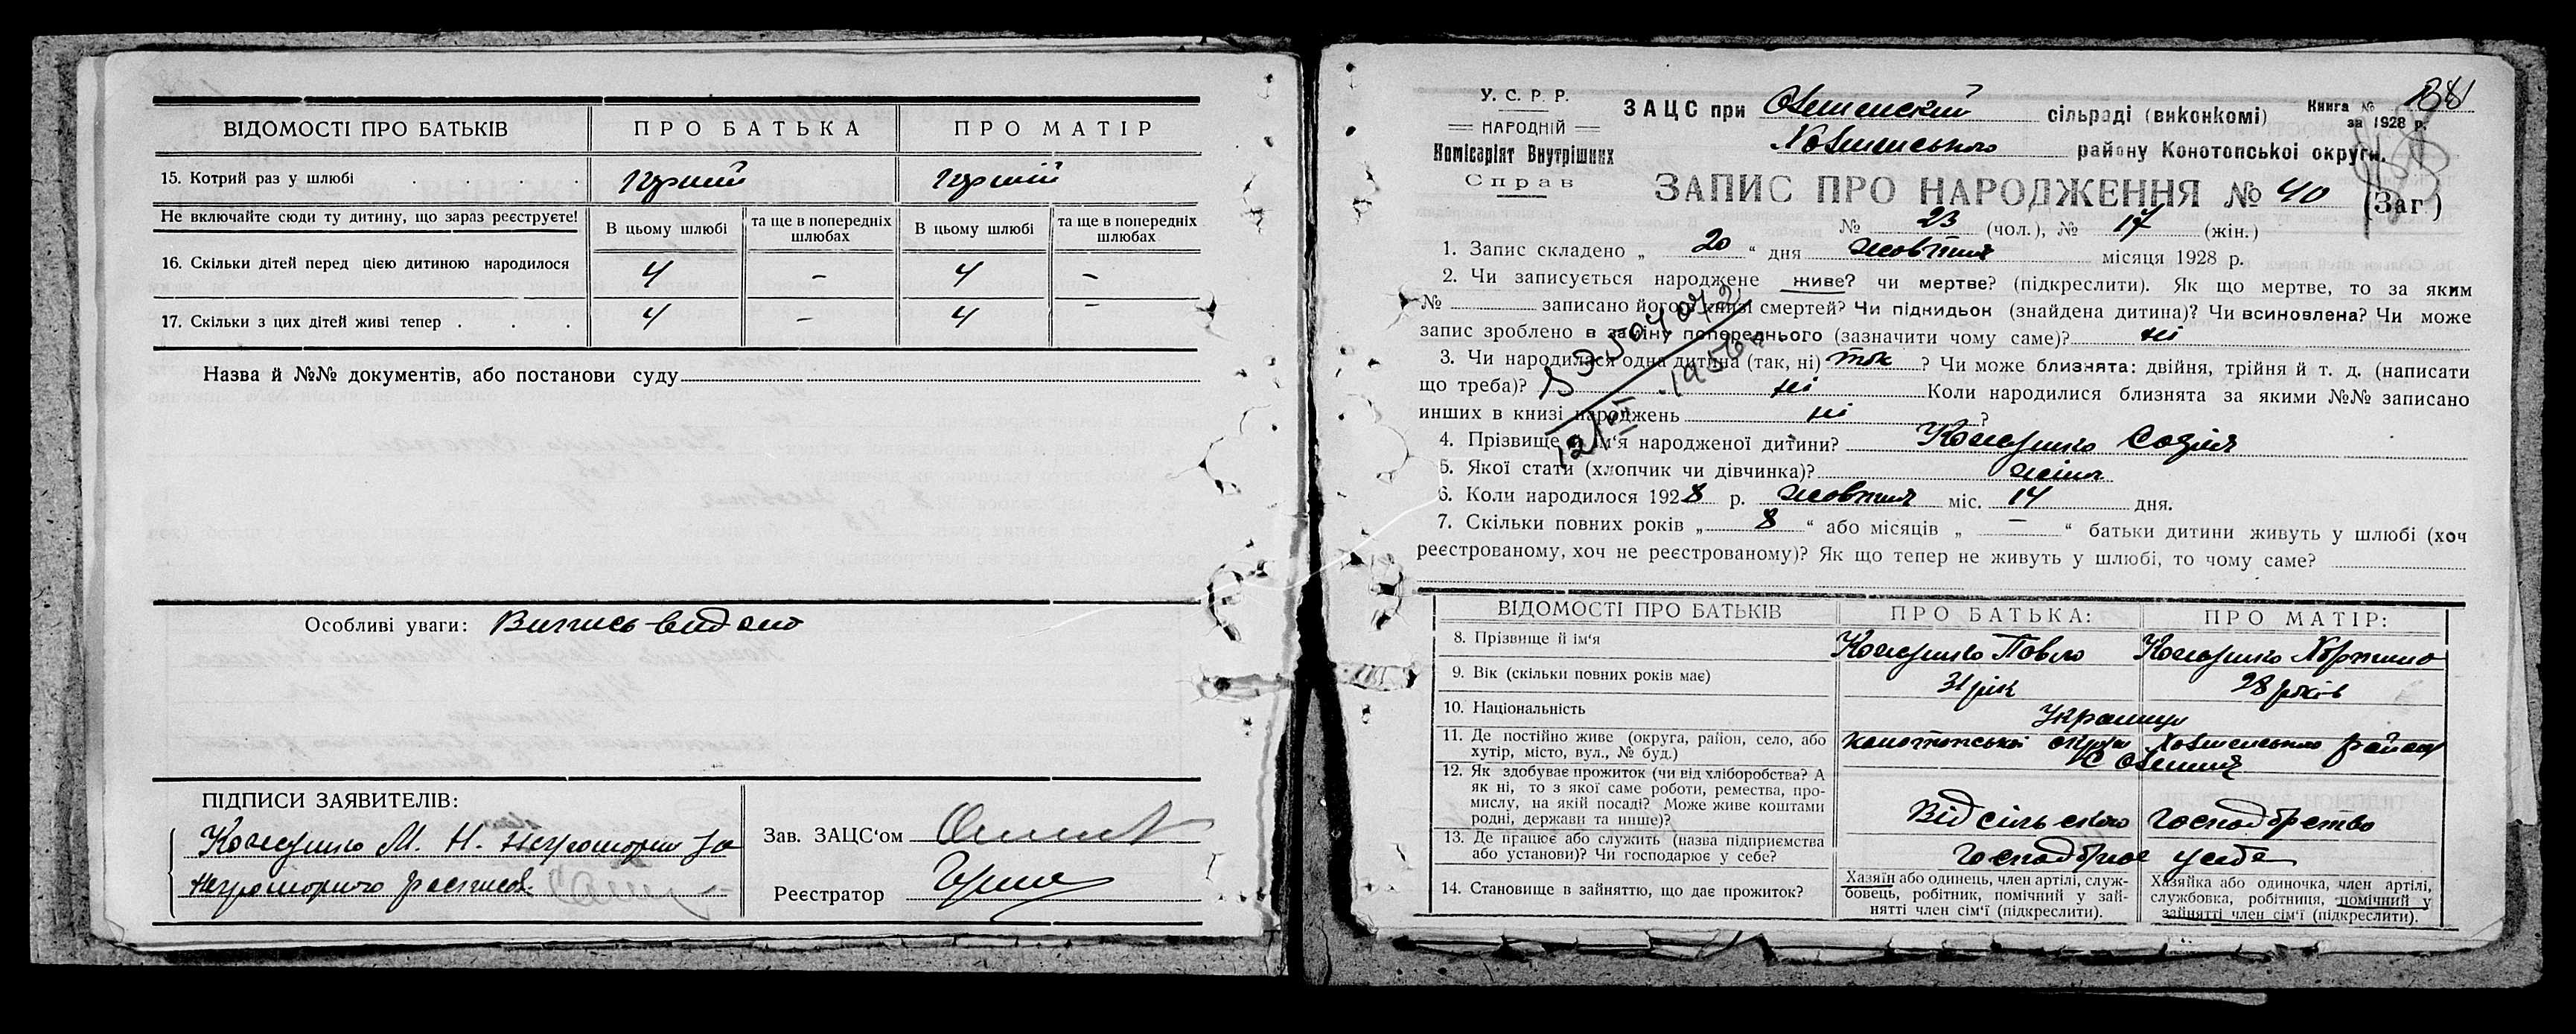 ВІДОМОСТІ ПРО БАТЬКІВ
ПРО БАТЬКА
ПРО МАТІР
15. Котрий раз у шлюбі . . . .
перший
перший
Не включайте сюди ту дитину, що зараз реєструєте!
В цьому шлюбі
та ще в попередніх шлюбах
В цьому шлюбі
та ще в попередніх шлюбах
16. Скільки дітей перед цією дитиною народилося
4 – 4 –
17. Скільки з цих дітей живі тепер . . .
4 – 4 –
Назва й №№ документів, або постанови суду
Особливі уваги: Випись видано
ПІДПИСИ ЗАЯВИТЕЛІВ:
М. Н.
Зав. ЗАЦС‘ом
Реєстратор
У. С. Р. Р.
НАРОДНІЙ
Комісаріят Внутрішних
Справ
ЗАЦС при сільраді (виконкомі)
Книга №
за 1928 р.
району Конотопської округи.
ЗАПИС ПРО НАРОДЖЕННЯ № 40 (Заг)
№ 23 (чол.), № 17 (жін.)
1. Запис складено „ 20 “ дня жовтня місяця 1928 р.
2. Чи записується народжене живе? чи мертве? (підкреслити). Як що мертве, то за яким
№ записано його в книзі смертей? Чи підкидьок (знайдена дитина)? Чи всиновлена? Чи може
запис зроблено в заміну попереднього (зазначити чому саме)? ні
3. Чи народилася одна дитина (так, ні) так ? Чи може близнята: двійня, трійня й т. д. (написати
що треба)? ні Коли народилися близнята за якими №№ записано
инших в книзі народжень ні ?
4. Прізвище й ім‘я народженої дитини? Софія
5. Якої стати (хлопчик чи дівчинка)? жіноч
6. Коли народилося 1928 р. жовтня міс. 14 дня.
7. Скільки повних років „ 8 “ або місяців „ — “ батьки дитини живуть у шлюбі (хоч
реєстрованому, хоч не реєстрованому)? Як що тепер не живуть у шлюбі, то чому саме?
ВІДОМОСТІ ПРО БАТЬКІВ
ПРО БАТЬКА:
ПРО МАТІР:
8. Прізвище й ім‘я
Павло
9. Вік (скільки повних років має)
31 рік
28 років
10. Національність
Українці
11. Де постійно живе (округа, район, село, або
хутір, місто, вул., № буд.)
Конотопської округи району
12. Як здобуває прожиток (чи від хліборобства? А
як ні, то з якої саме роботи, ремества, про-
мислу, на якій посаді? Може живе коштами
родні, держави та инше)?
Від сільского господарства
13. Де працює або служить (назва підприємства
або установи)? Чи господарює у себе?
господарює у себе
14. Становище в зайняттю, що дає прожиток?
Хазяїн або одинець, член артілі, служ-
бовець, робітник, помічний у зай-
нятті член сім‘ї (підкреслити).
Хазяйка або одиночка, член артілі,
службовка, робітниця, помічний у
зайнятті член сім‘ї (підкреслити).